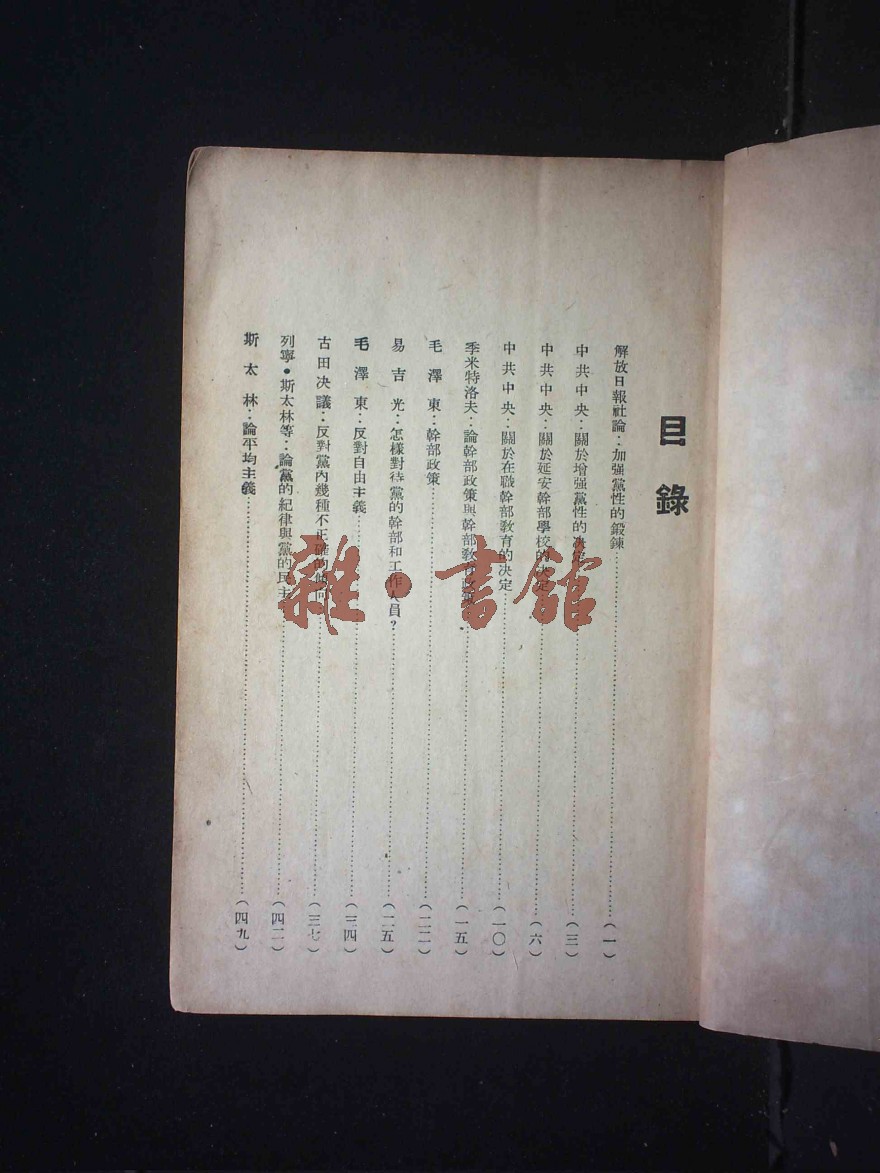 目錄
解放日報社論：加强黨性的鍛鍊……（一）
中共中央：關於增强黨性的决定……（三）
中共中央：關於延安幹部學校的决定……（六）
中共中央：關於在職幹部教育的决定……（一〇）
季米特洛夫：論幹部政策與幹部教育政策……（一五）
毛澤東：幹部政策……（二二）
易吉光：怎樣對待黨的幹部和工作人員？……（二五）
毛澤東：反對自由主義……（三四）
古田决議：反對黨內幾種不正確的傾向……（三七）
列寧•斯太林等：論黨的紀律與黨的民主……（四二）
斯太林：論平均主義……（四九）
雜·書館